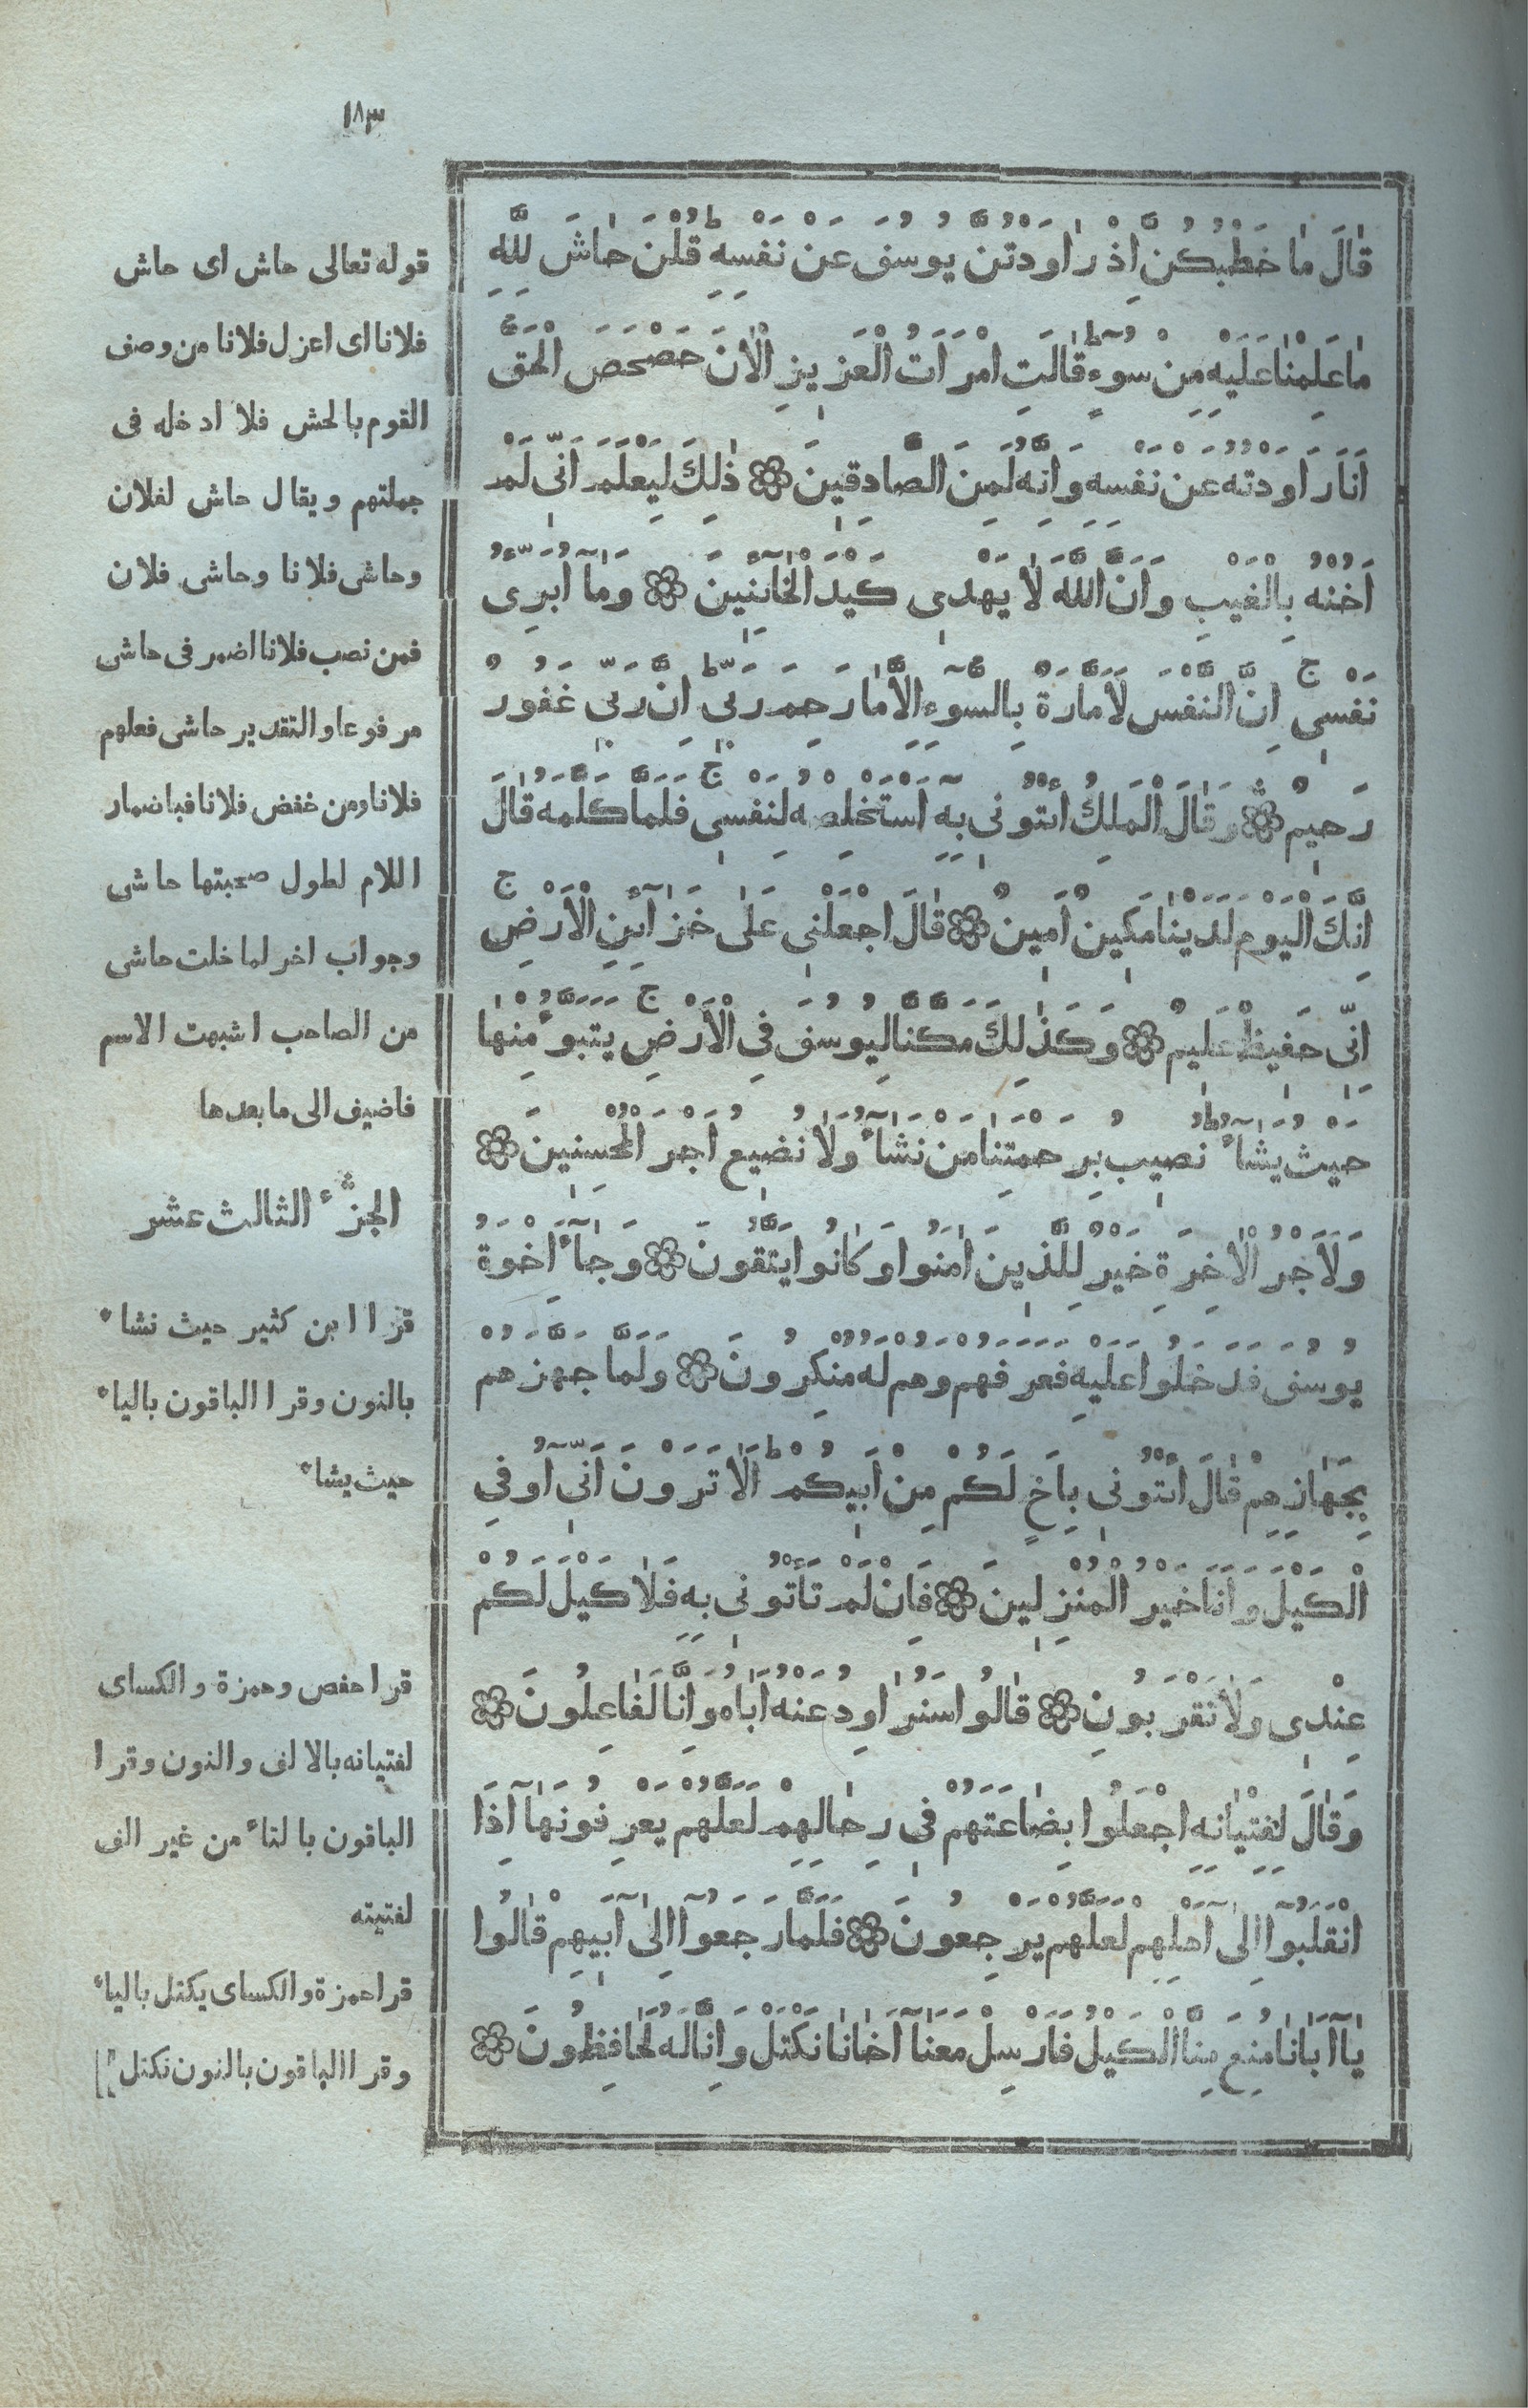 ١٨٣
قَالَ مَا خَطْبُكُنَّ اِذْ رَاوَدْتُنَّ يُوسُفَ عَنْ نَفْسِهِ ط قُلْنَ حَاشَ لِلَّهِ
مَا عَلِمْنَا عَلَيْهِ مِنْ سُوٓءٍ ط قَالَتِ امْرَاَتُ الْعَزِيزِ الْاٰنَ حَصْحَصَ الْحَقُّ
اَنَا رَاوَدْتُهُ عَنْ نَفْسِهِ وَاِنَّهُ لَمِنَ الصَّادِقِينَ ۞ ذٰلِكَ لِيَعْلَمَ اَنِّى لَمْ
اَخُنْهُ بِالْغَيْبِ وَاَنَّ اللَّهَ لَا يَهْدِى كَيْدَ الْخَآئِنِينَ ۞ وَمَآ اُبَرِّئُ
نَفْسِى ج اِنَّ النَّفْسَ لَاَمَّارَةٌ بِالسُّوٓءِ اِلَّا مَا رَحِمَ رَبِّى ط اِنَّ رَبِّى غَفُورٌ
رَحِيمٌ ۞ وَقَالَ الْمَلِكُ ائْتُونِى بِهِٓ اَسْتَخْلِصْهُ لِنَفْسِى ج فَلَمَّا كَلَّمَهُ قَالَ
اِنَّكَ الْيَوْمَ لَدَيْنَا مَكِينٌ اَمِينٌ ۞ قَالَ اجْعَلْنِى عَلٰى خَزَآئِنِ الْاَرْضِ ج
اِنِّى حَفِيظٌ عَلِيمٌ ۞ وَكَذٰلِكَ مَكَّنَّا لِيُوسُفَ فِى الْاَرْضِ ج يَتَبَوَّءُ مِنْهَا
حَيْثُ يَشَآءُ ط نُصِيبُ بِرَحْمَتِنَا مَنْ نَشَآءُ وَلَا نُضِيعُ اَجْرَ الْمُحْسِنِينَ ۞
وَلَاَجْرُ الْاٰخِرَةِ خَيْرٌ لِلَّذِينَ اٰمَنُوا وَكَانُوا يَتَّقُونَ ۞ وَجَآءَ اِخْوَةُ
يُوسُفَ فَدَخَلُوا عَلَيْهِ فَعَرَفَهُمْ وَهُمْ لَهُ مُنْكِرُونَ ۞ وَلَمَّا جَهَّزَهُمْ
بِجَهَازِهِمْ قَالَ ائْتُونِى بِاَخٍ لَكُمْ مِنْ اَبِيكُمْ ط اَلَا تَرَوْنَ اَنِّىٓ اُوفِى
الْكَيْلَ وَاَنَا خَيْرُ الْمُنْزِلِينَ ۞ فَاِنْ لَمْ تَأْتُونِى بِهِ فَلَا كَيْلَ لَكُمْ
عِنْدِى وَلَا تَقْرَبُونِ ۞ قَالُوا سَنُرَاوِدُ عَنْهُ اَبَاهُ وَاِنَّا لَفَاعِلُونَ ۞
وَقَالَ لِفِتْيَانِهِ اجْعَلُوا بِضَاعَتَهُمْ فِى رِحَالِهِمْ لَعَلَّهُمْ يَعْرِفُونَهَآ اِذَا
انْقَلَبُوٓا اِلٰىٓ اَهْلِهِمْ لَعَلَّهُمْ يَرْجِعُونَ ۞ فَلَمَّا رَجَعُوٓا اِلٰىٓ اَبِيهِمْ قَالُوا
يَآ اَبَانَا مُنِعَ مِنَّا الْكَيْلُ فَاَرْسِلْ مَعَنَآ اَخَانَا نَكْتَلْ وَاِنَّا لَهُ لَحَافِظُونَ ۞
قوله تعالى حاش اى حاش
فلانا اى اعزل فلانا من وصف
القوم بالحش فلا ادخله فى
جملتهم ويقال حاش لفلان
وحاشى فلانا وحاشى فلان
فمن نصب فلانا اضمر فى حاشى
مرفوعا والتقدير حاشى فعلهم
فلانا ومن خفض فلانا فباضمار
اللام لطول صحبتها حاشى
وجواب اخر لما خلت حاشى
من الصاحب اشبهت الاسم
فاضيف الى ما بعدها
الجزء الثالث عشر
قرا ابن كثير حيث نشاء
بالنون وقرا الباقون بالياء
حيث يشاء
قرا حفص وحمزة والكساى
لفتيانه بالالف والنون وقرا
الباقون بالتاء من غير الف
لفتيته
قرا حمزة والكساى يكتل بالياء
وقرا الباقون بالنون نكتل